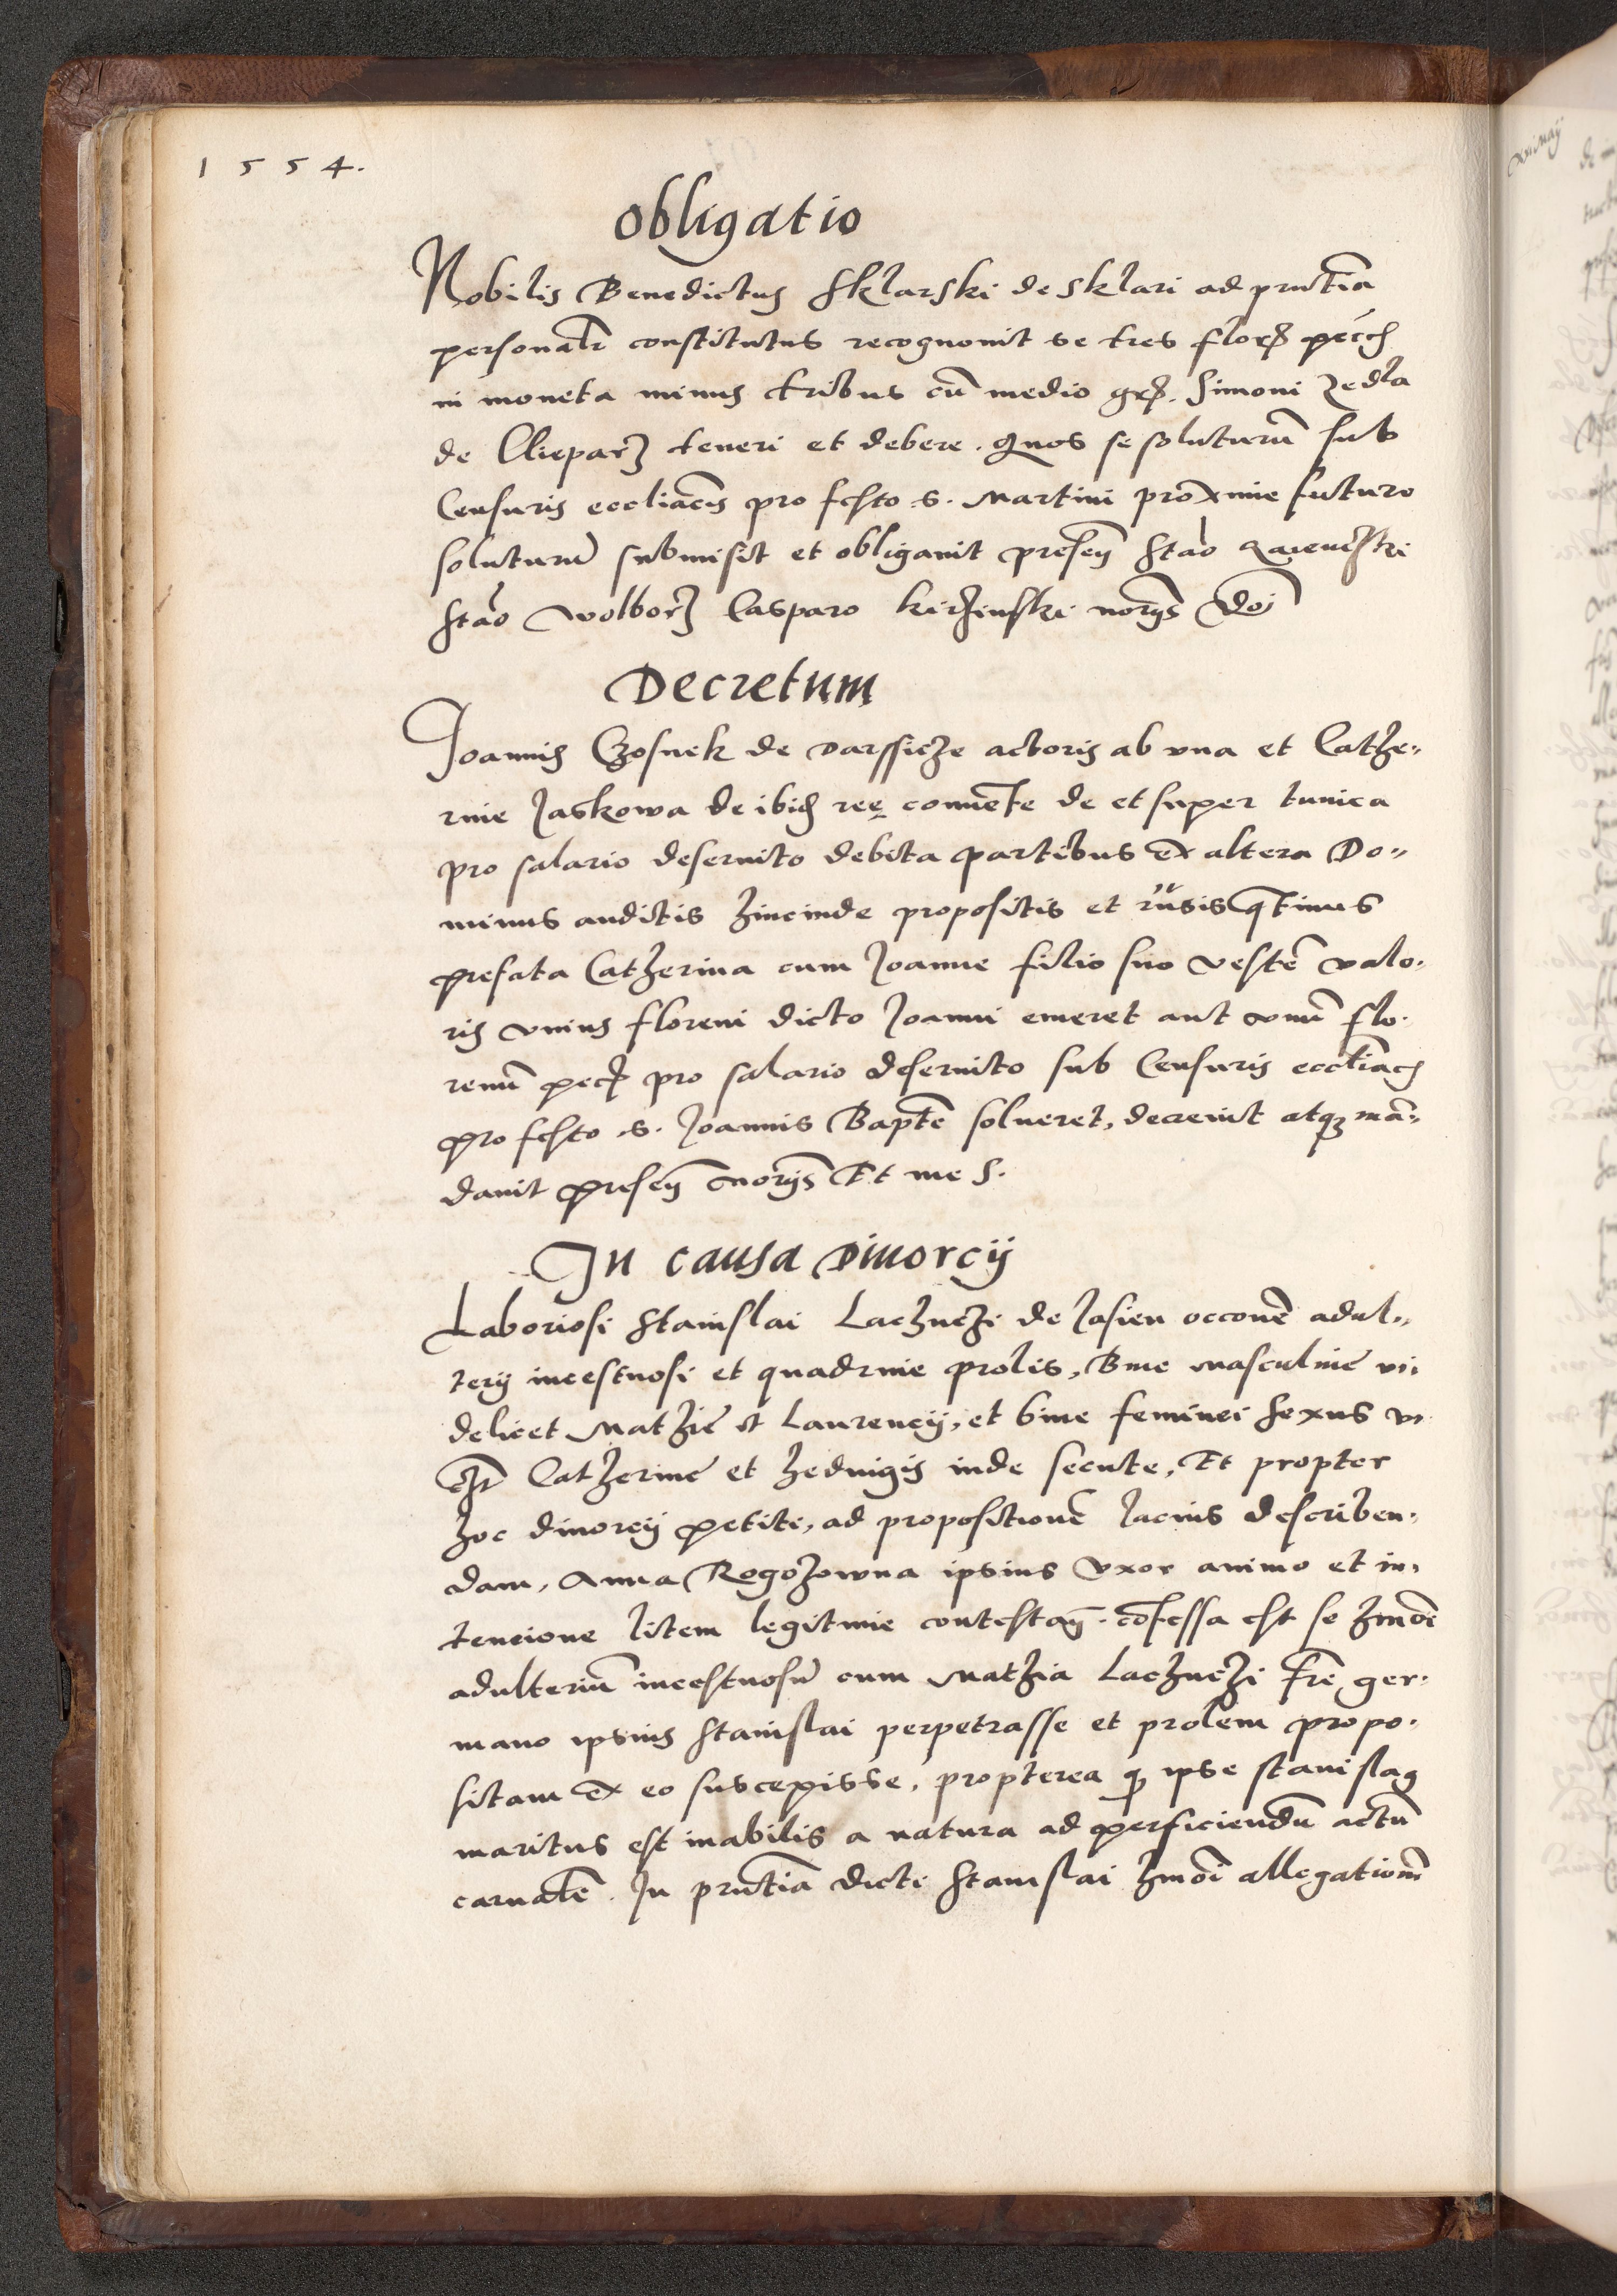 1554.
obligatio
Nobilis Benedictus Sklarski de Sklari ad pñtia
personalr constitutus recognouit se tres flor pecch
in moneta minus tribus cũ medio gr. Simoni
de Cliepar teneri et debere. Quos se soluturũ sub
Censuris eccliacis pro festo s. Martini proxime futuro
soluturũ submisit et obligauit presen Stao
Stao Wolbor Casparo kirzinski norys
Decretum
Joannis Czosnek de Darssicze actoris ab vna et Cathe=
rine Jaskowa de ibid ree conuete de et super tunica
pro salario deseruito debita partibus ex altera Do=
minus auditis hincinde propositis et qtinus
prefata Catherina cum Joanne filio suo vestẽ valo.
ris vnius floreni dicto Joanni emeret aut vnũ flo.
renũ pec pro salario deseruito sub Censuris eccliac
pro festo .s. Joannis Bapte solueret, decreuit atq mã=
dauit presen norys Et me S.
In causa Diuorcij
Laboriosi Stanislai Laczuczi de Jasien occonẽ adul=
terij incestuosi et quadrine prolis, Bine masculine vi.
delicet Mathie et Laurencij, et bine feminei sexus vi
Catherine et heduigis inde secute, Et propter
hoc diuorcij petiti, ad propositionẽ lacius describen.
dam, Anna Rogozowna ipsius vxor animo et in.
tencione litem legitime contestan. cõfessa est se hmõi
adulteriũ incestuosũ cum Mathia Laczuczi fre ger.
mano ipsius Stanislai perpetrasse et prolem propo.
sitam ex eo suscepisse, propterea q ipse stanislaq
maritus est inabilis a natura ad perficiendũ actũ
carnalẽ. In pñtia dicti Stanislai hmõi allegationẽ